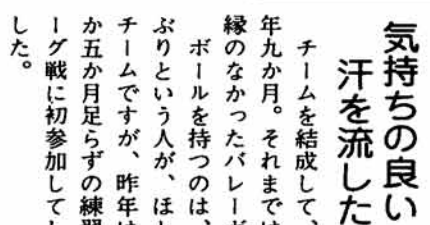 気持ちの良い
汗を流した
チームを結成して、
年九か月。それまでは
縁のなかったバレーボ
ボールを持つのは、
ぶりという人が、ほと
チームですが、昨年は
か五か月足らずの練習
ーグ戦に初参加してし
した。